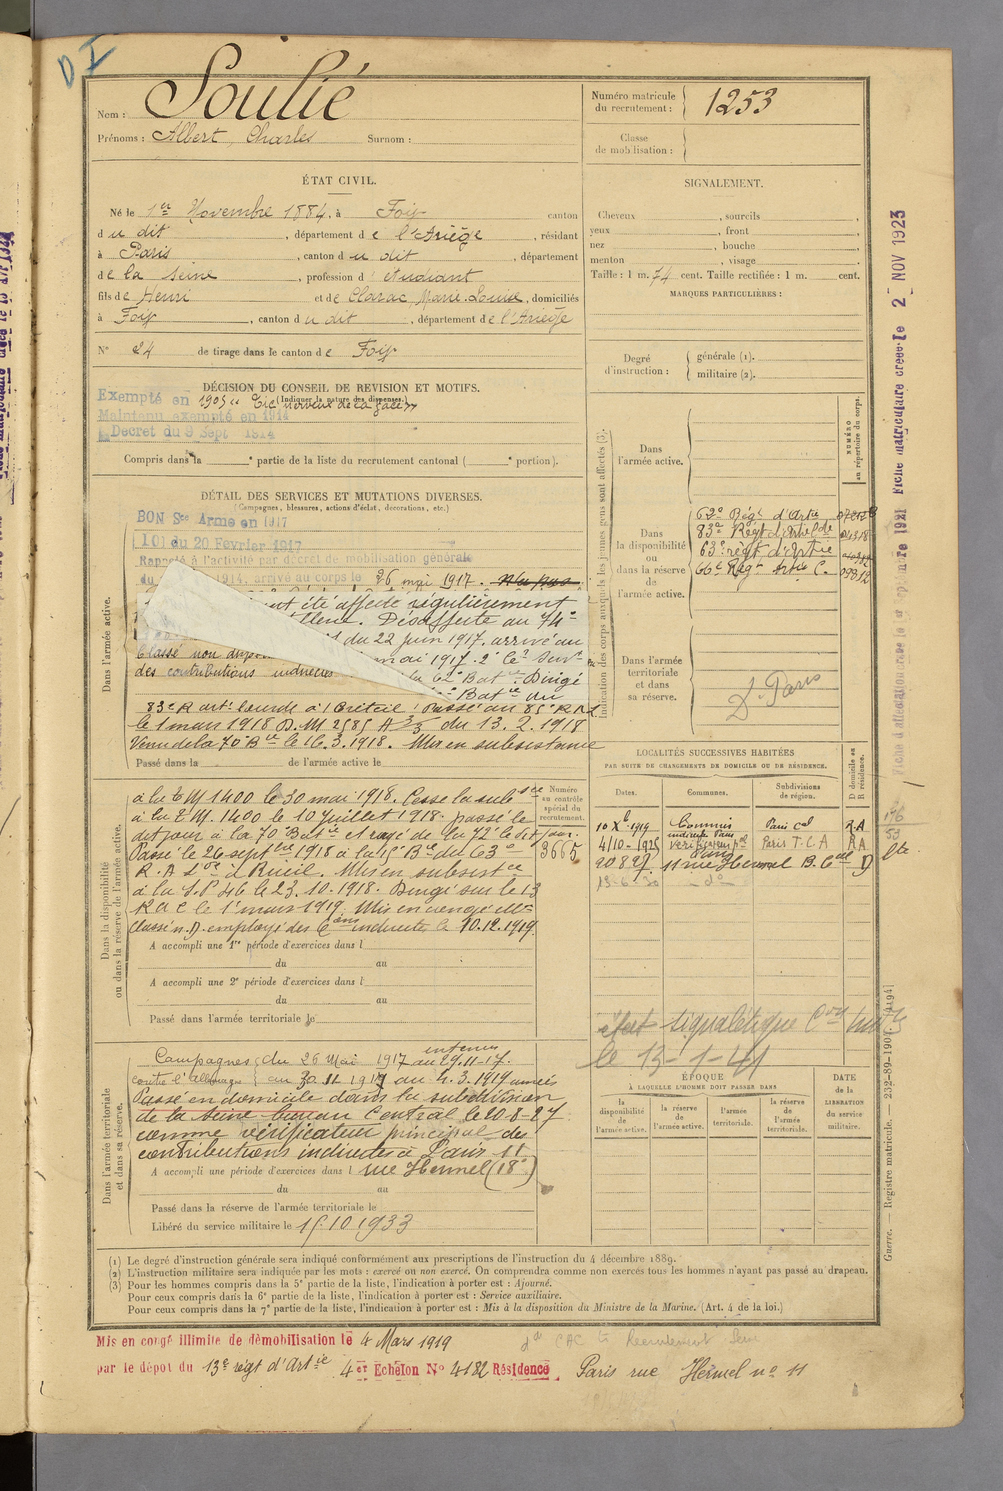 D I
Nom : Soulié
Prénoms : Albert, Charles Surnom :
Numéro matricule
du recrutement : 1253
Classe
de mobilisation :
ÉTAT CIVIL.
Né le 1er Novembre 1884, à Foix canton
du dit, département de l'Ariège, résidant
à Paris, canton du dit, département
de la Seine, profession d'étudiant
fils de Henri et de Clarac Marie-Louise, domiciliés
à Foix, canton du dit, département de l'Ariège
N° 24 de tirage dans le canton de Foix
SIGNALEMENT.
Cheveux , sourcils ,
yeux , front ,
nez , bouche ,
menton , visage
Taille : 1 m. 74 cent. Taille rectifiée : 1 m. cent.
MARQUES PARTICULIÈRES :
Degré
d'instruction :
générale (1).
militaire (2).
DÉCISION DU CONSEIL DE REVISION ET MOTIFS.
(Indiquer la nature des dispenses.)
Exempté en 1905 « Tic nerveux de la face »
Maintenu exempté en 1914
Décret du 9 Sept 1914
Compris dans la e partie de la liste du recrutement cantonal ( e portion).
DÉTAIL DES SERVICES ET MUTATIONS DIVERSES.
(Campagnes, blessures, actions d'éclat, décorations, etc.)
Dans l'armée active.
BON Sce Armé en 1917
loi du 20 Février 1917
Rappelé à l'activité par décret de mobilisation générale
du 1914, arrivé au corps le 26 mai 1917. N'a pas
été affecté régulièrement
Désaffecté au 74e
du 22 juin 1917. arrivé au
Classé non dispo mai 1917.
des contributions indirectes Dirigé
Batie du
83e R. art. lourde à Créteil. Passé au 85e R.A.L
le 1 mars 1918 D.M 2585 A 3/3 du 13.2.1918
Venu de la 70e Bie le 16.3.1918. Mis en subsistance
Passé dans la de l'armée active le
Dans la disponibilité
ou dans la réserve de l'armée active.
à la T M 1400 le 30 mai 1918. Cesse la subsce
à la T.M. 1400 le 10 juillet 1918. passé le
dit jour à la 70e Batie et rayé de la 72e le dit jour.
Passé le 26 septbre 1918 à la 15e Bie du 63e
R.A. à Rueil. Mis en subsistce
à la S.P 46 le 23.10.1918. Dirigé sur le 13
R A C le 1 mars 1919. Mis en congé
Classé n.D. employé des Cons indirectes le 10.12.1919.
Numéro
au contrôle
spécial du
recrutement.
3665
A accompli une 1re période d'exercices dans l
du au
A accompli une 2e période d'exercices dans l
du au
Passé dans l'armée territoriale le
Dans l'armée territoriale
et dans sa réserve.
Campagnes du 26 Mai 1917 au 29.11.17. intérieur
contre l'Allemagne au 30.11.1917 au 4.3.1919 armées
Passé en domicile dans la subdivision
de la Seine bureau Central le 20-8-27
comme vérificateur principal des
contributions indirectes à Paris 11
A accompli une période d'exercices dans l rue Hermel (18e)
du au
Passé dans la réserve de l'armée territoriale le
Libéré du service militaire le 15.10.1933
Indication des corps auxquels les jeunes gens sont affectés (3).
NUMÉRO
au répertoire du corps.
Dans
l'armée active.
Dans
la disponibilité
ou
dans la réserve
de
l'armée active.
62e Régt d'Artie
83e Régt d'Artie
63e régt d'Artie
66e Régt Artie C.
Dans l'armée
territoriale
et dans
sa réserve.
Dt Paris
LOCALITÉS SUCCESSIVES HABITÉES
PAR SUITE DE CHANGEMENTS DE DOMICILE OU DE RÉSIDENCE.
Dates. Communes. Subdivisions de région. D domicile ou R résidence.
10 Xbre 1919 Commis indirect Paris Paris Cal R.A
4/10-1925 Vérificateur pal Paris Paris T.C.A R.A
20 8 27 11 rue Hermel B. Cal D
13-6-30 do
état signalétique
le 13-1-41
ÉPOQUE
À LAQUELLE L'HOMME DOIT PASSER DANS
la disponibilité de l'armée active. la réserve de l'armée active. l'armée territoriale. la réserve de l'armée territoriale.
DATE
de la
LIBÉRATION
du service
militaire.
(1) Le degré d'instruction générale sera indiqué conformément aux prescriptions de l'instruction du 4 décembre 1889.
(2) L'instruction militaire sera indiquée par les mots : exercé ou non exercé. On comprendra comme non exercés tous les hommes n'ayant pas passé au drapeau.
(3) Pour les hommes compris dans la 5e partie de la liste, l'indication à porter est : Ajourné.
Pour ceux compris dans la 6e partie de la liste, l'indication à porter est : Service auxiliaire.
Pour ceux compris dans la 7e partie de la liste, l'indication à porter est : Mis à la disposition du Ministre de la Marine. (Art. 4 de la loi.)
Mis en congé illimité de démobilisation le 4 Mars 1919
par le dépôt du 13e régt d'Artie 4er Echelon N° 4182 Résidence Paris rue Hermel n° 11
Fiche matriculaire créée le 2 NOV 1923
Guerre. — Registre matricule. — 232-89-190